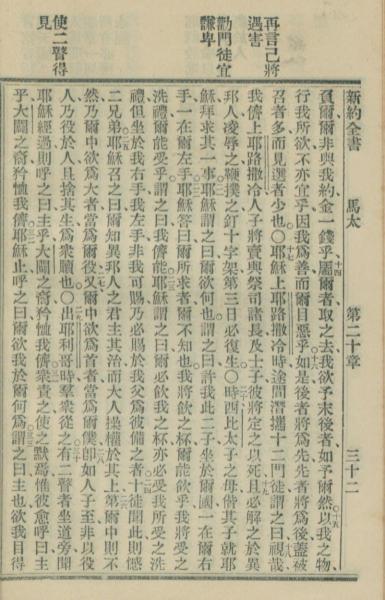 再言己將
遇害
勸門徒宜
謙卑
使二瞽得
見
新約全書 馬太 第二十章 三十二
負爾爾非與我約金一錢乎屬爾者取之去我欲予末後者如予爾然以我之物
行我所欲不亦宜乎因我爲善而爾目惡乎如是後者將爲先先者將爲後蓋被
召者多而見選者少也〇耶穌上耶路撒冷時途間潛攜十二門徒謂之曰視哉
我儕上耶路撒冷人子將賣與祭司諸長及士子彼將定之以死且必解之於異
邦人凌辱之鞭撲之釘十字架第三日必復生〇時西比太子之母偕其子就耶
穌拜求其一事耶穌謂之曰爾欲何也謂之曰許我此二子坐於爾國一在爾右
手一在爾左手耶穌答曰爾所求者爾不知也我將飲之杯爾能飲乎我將受之
洗禮爾能受乎謂之曰我儕能耶穌謂之曰爾必飲我之杯亦必受我所受之洗
禮但坐於我右手我左手非我可賜乃必賜於我父爲彼備之者十徒聞此則憾
二兄弟耶穌召之曰爾知異邦人之君主其治而大人操權於其上第爾中則不
然乃爾中欲爲大者當爲爾役又爾中欲爲首者當爲爾僕卽如人子至非以役
人乃役於人且捨其生爲衆贖也〇出耶利哥時羣衆從之有二瞽者坐道旁聞
耶穌經過則呼之曰主乎大闢之裔矜恤我儕衆責之使之默焉惟彼愈呼曰主
乎大闢之裔矜恤我儕耶穌止呼之曰爾欲我於爾何爲謂之曰主也欲我目得